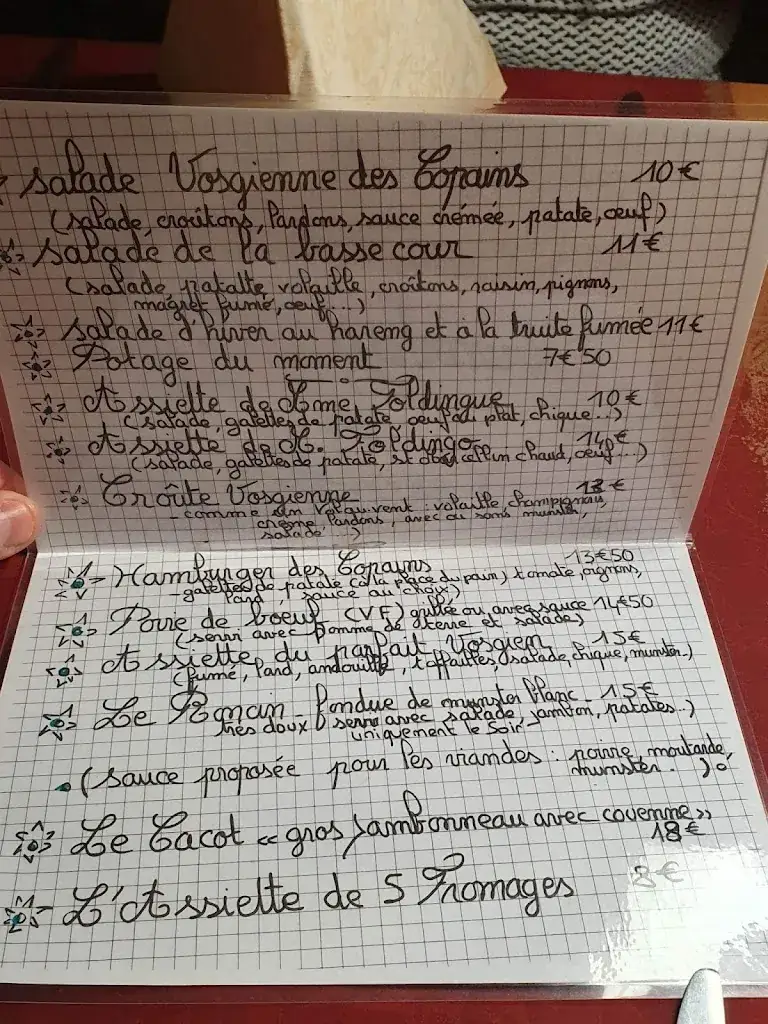 salade Vosgienne des Copains 10€
(salade, croûtons, lardons, sauce crémée, patate, oeuf)
salade de la basse cour 11€
(salade, patatte, volaille, croûtons, raisin, pignons,
magret fumé, oeuf...)
salade d'hiver au hareng et à la truite fumée 11€
Potage du moment 7€50
Assiette de Mme Foldingue 10€
(salade, galettes de patate, oeuf au plat, chique...)
Assiette de M. Foldingo 14€
(salade, galettes de patate, chaud, oeuf...)
Croûte Vosgienne 13€
- comme un vol au vent : volaille, champignons,
crème, lardons, avec ou sans munster,
salade...)
Hamburger des Copains 13€50
- galettes de patate (à la place du pain) tomate, oignons,
lard, sauce au choix)
Poire de boeuf (VF) grillée ou avec sauce 14€50
(servi avec pomme de terre et salade)
Assiette du parfait Vosgien 15€
(fumé, lard, andouille, salade, chique, munster..)
Le Romain - fondue de munster blanc - 15€
très doux servi avec salade, jambon, patates..)
uniquement le soir
(sauce proposée pour les viandes : poivre, moutarde,
munster..)
Le Cacot « gros jambonneau avec couenne »
18€
L'Assiette de 5 Fromages 8€